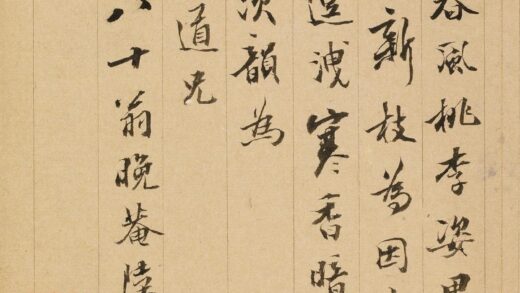 春風桃李姿
新枝為因
洩寒香暗
次韻為
道兄
八十翁晚菴陸